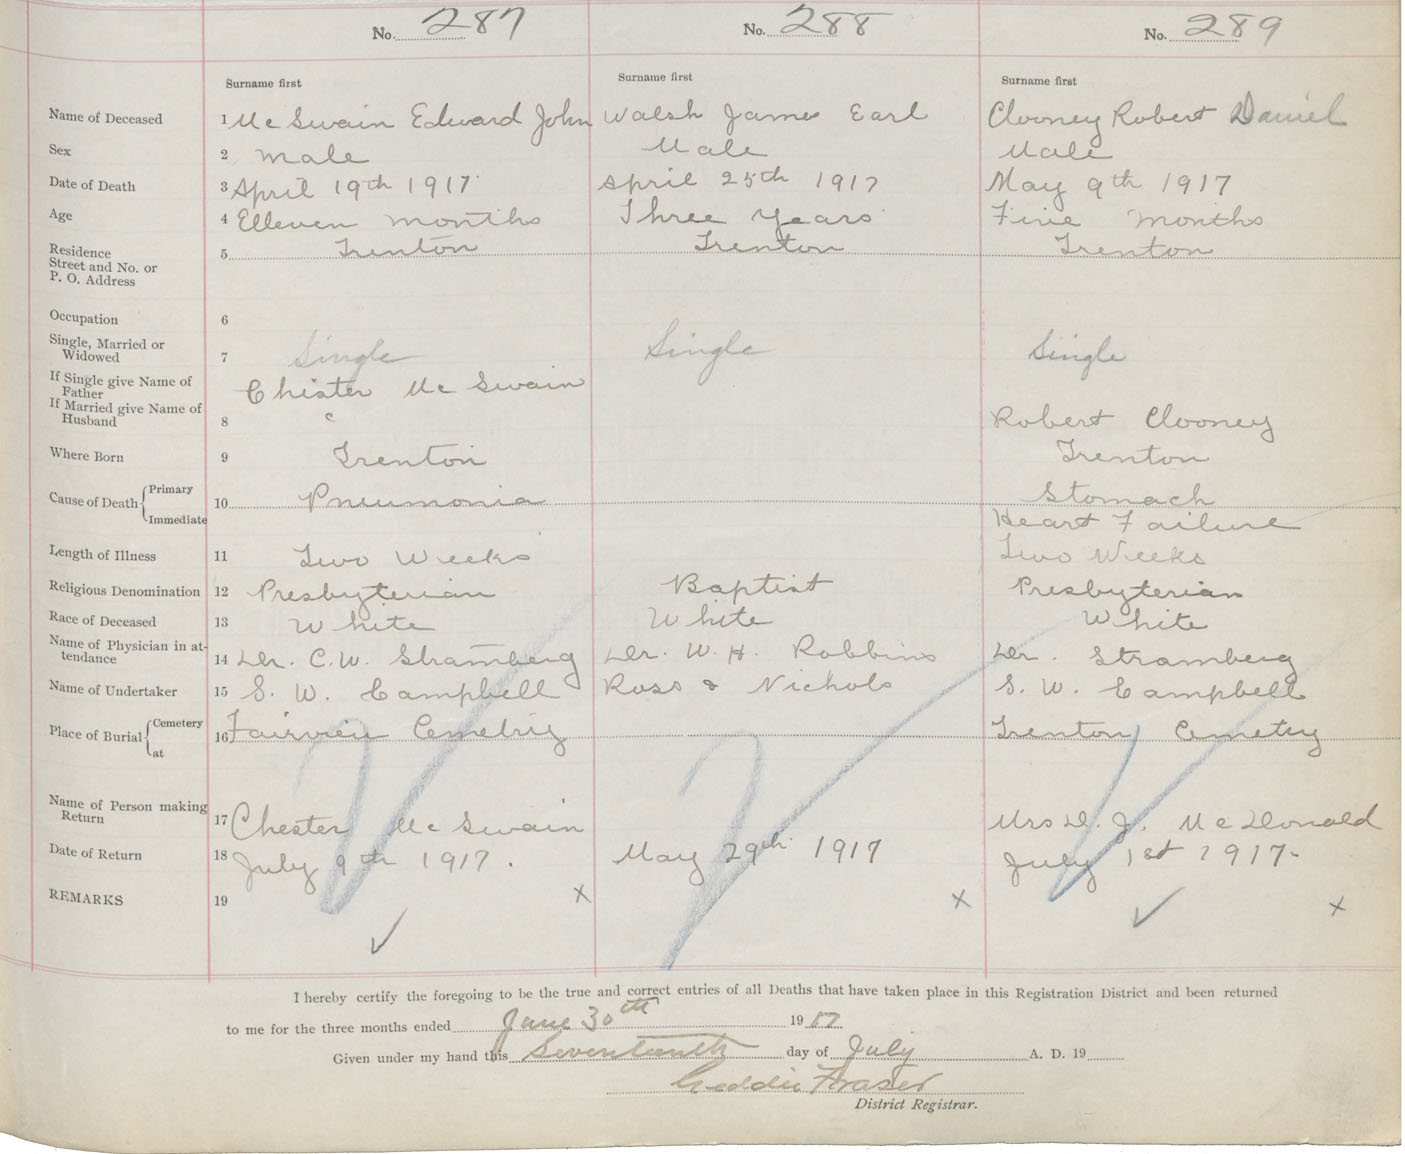 No. 287 No. 288 No. 289
Surname first Surname first Surname first
Name of Deceased 1 Mc Swain Edward John Walsh James Earl Clooney Robert Daniel
Sex 2 Male Male Male
Date of Death 3 April 19th 1917 April 25th 1917 May 9th 1917
Age 4 Elleven Months Three Years Five Months
Residence
Street and No. or
P. O. Address 5 Trenton Trenton Trenton
Occupation 6
Single, Married or
Widowed 7 Single Single Single
If Single give Name of
Father Chister Mc Swain
If Married give Name of
Husband 8 c Robert Clooney
Where Born 9 Trenton Trenton
Cause of Death { Primary 10 Pneumonia Stomach
Immediate Heart Failure
Length of Illness 11 Two Weeks Two Weeks
Religious Denomination 12 Presbyterian Baptist Presbyterian
Race of Deceased 13 White White White
Name of Physician in at-
tendance 14 Dr. C.W. Stramberg Dr. W. H. Robbins Dr. Stramberg
Name of Undertaker 15 S. W. Campbell Ross & Nichols S. W. Campbell
Place of Burial { Cemetery 16 Fairview Cemetry Trenton Cemetry
at
Name of Person making
Return 17 Chester Mc Swain Mrs D. J. Mc Donald
Date of Return 18 July 9th 1917. May 29th 1917 July 1st 1917.
REMARKS 19 x x x
I hereby certify the foregoing to be the true and correct entries of all Deaths that have taken place in this Registration District and been returned
to me for the three months ended June 30th 1917
Given under my hand this Seventeenth day of July A. D. 19
Geddie Fraser
District Registrar.